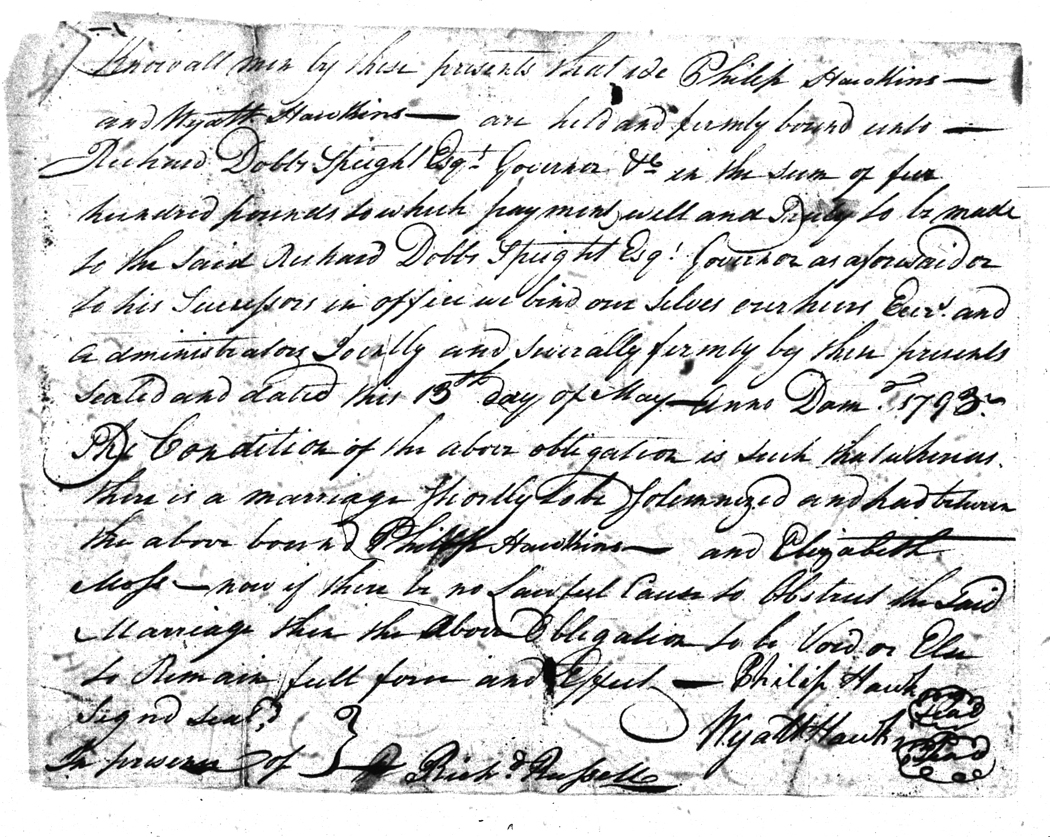 Know all men by these presents that we Philip Hawkins —
and Wyatt Hawkins — are held and firmly bound unto —
Richard Dobbs Speight Esqr. Governor &c in the sum of five
hundred pounds to which payment well and Truly to be made
to the said Richard Dobbs Speight Esqr. Governor as aforesaid or
to his Successors in office we bind our selves our heirs Exrs. and
administrators Jointly and severally firmly by these presents
sealed and dated this 13th day of May — Anno Domo. 1793.
The Condition of the above obligation is such that whereas.
there is a marriage Shortly to be Solemnized and had between
the above bound Philip Hawkins — and Elizabeth
Moss — now if there be no Lawful Cause to Obstruct the said
Marriage then the Above Obligation to be Void or Else
to Remain full force and Effect — Philip Hawkins Seal
Signd seald Wyatt Hawkins Seal
In presence of Richd. Russell